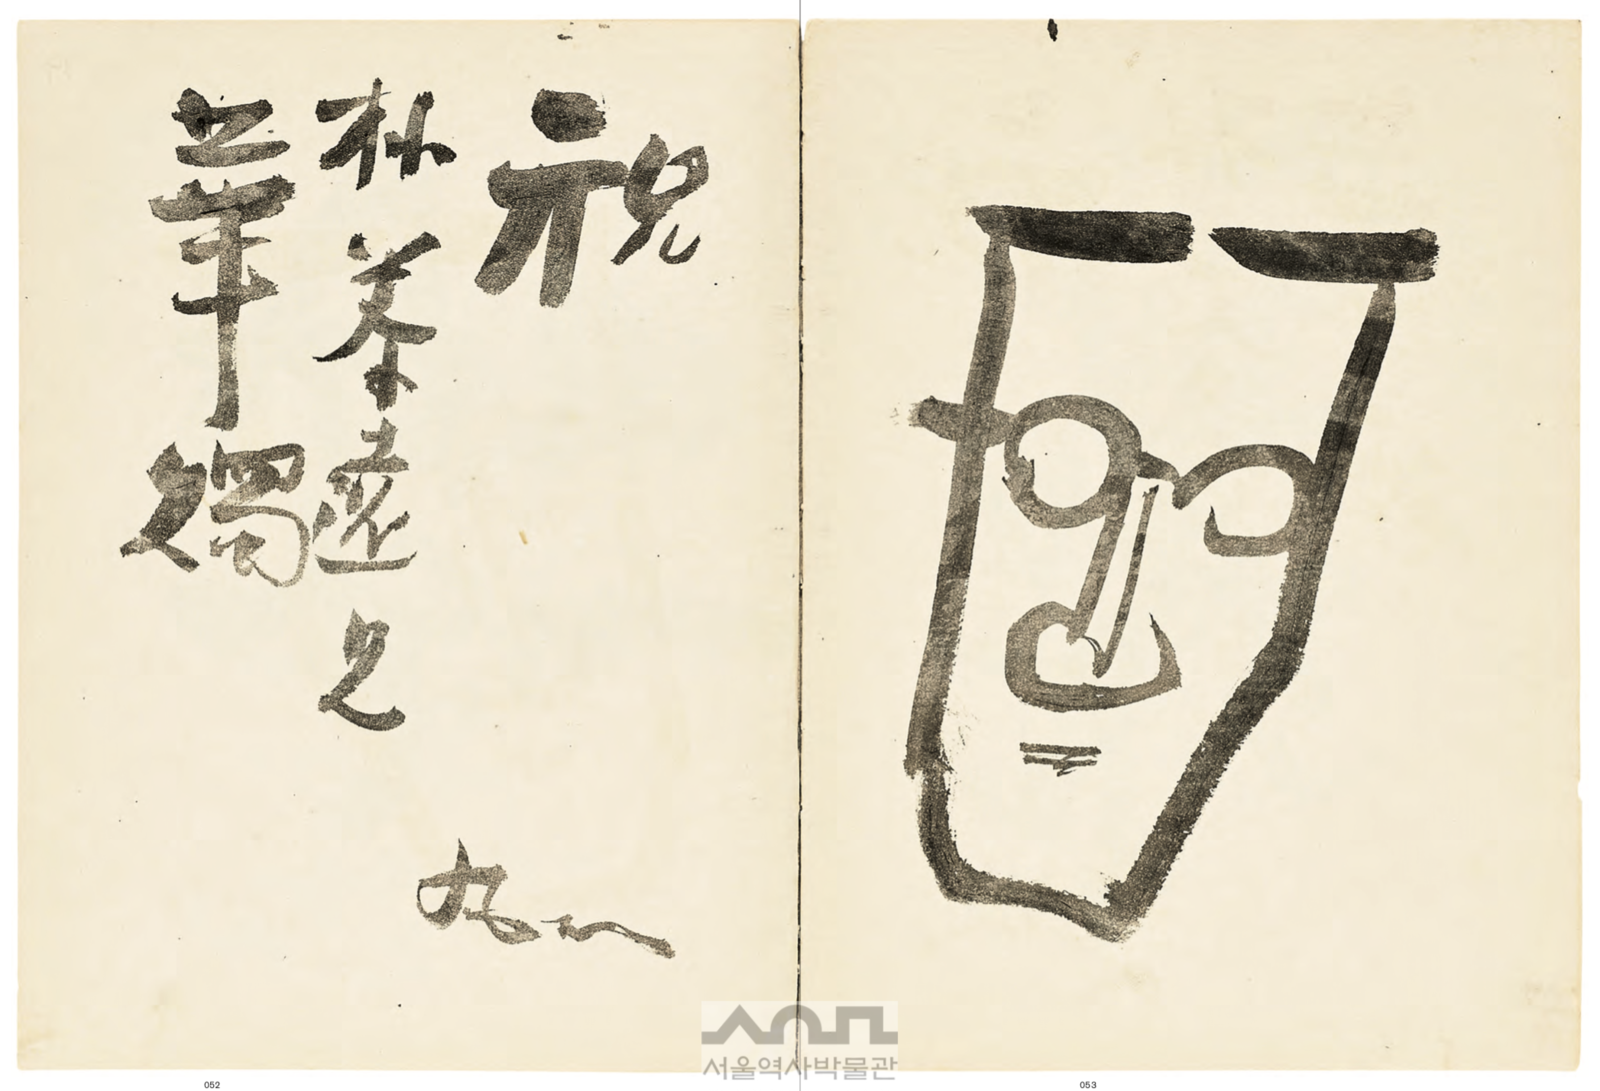 祝
朴泰遠兄
華燭
서울역사박물관
052
053